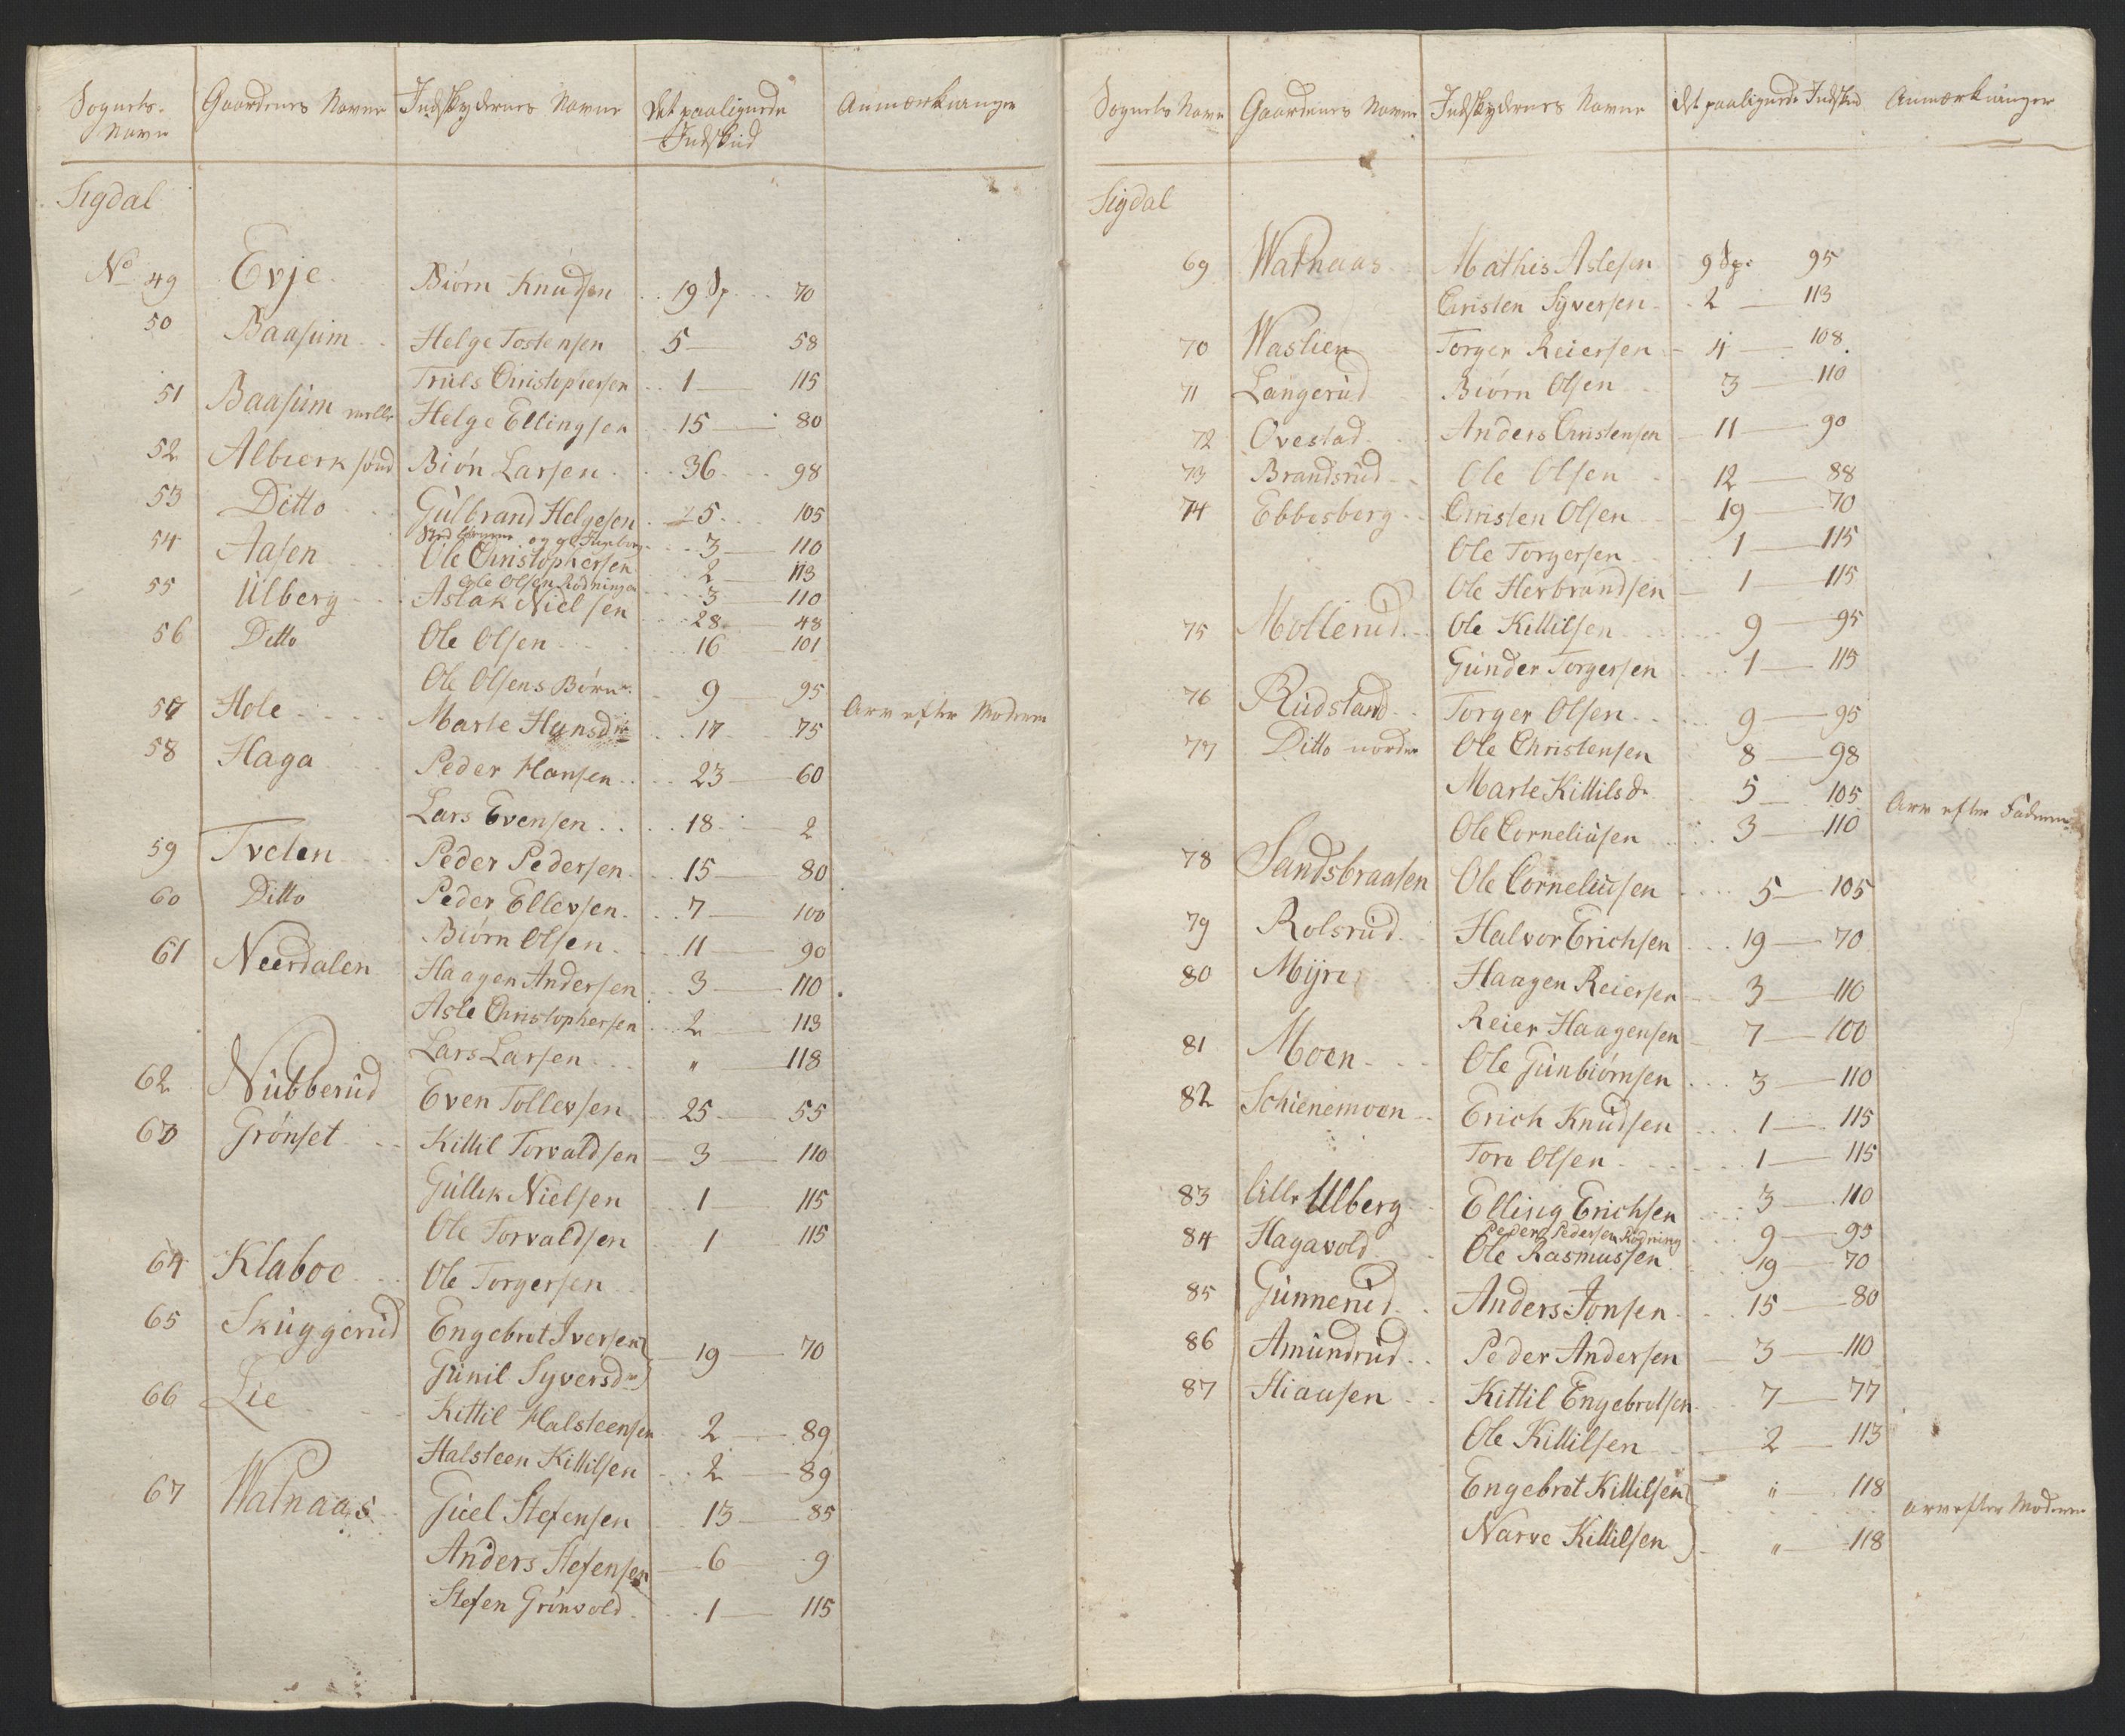 Sognets Navn	Gaardenes Navne	Indskydernes Navne	Det paalignede Indskud	Anmærkninger
Sigdal
No 49	Evje	Biørn Knudsen	19 Sp	70
50	Baasum	Helge Tostensen	5	58
Truls Christophersen	1	115
51	Baasum melle	Helge Ellingsen	15	80
52	Albierk sønd	Biørn Larsen	36	98
53	Ditto	Gulbrand Helgesen	25	105
54	Aasen	og gl Ingeborg	3	110
Ole Christophersen	2	113
Ole Olsen Rødningen	3	110
55	Ulberg	Aslak Nielsen	28	48
56	Ditto	Ole Olsen	16	101
Ole Olsens Børn	9	95
57	Hole	Marte Hansdtr	17	75	Arv efter Moderen
58	Haga	Peder Hansen	23	60
Lars Evensen	18	2
59	Tvelen	Peder Pedersen	15	80
60	Ditto	Peder Ellevsen	7	100
Biørn Olsen	11	90
61	Neerdalen	Haagen Andersen	3	110
Asle Christophersen	2	113
Lars Larsen	"	118
62	Nubberud	Even Tollevsen	25	55
63	Grønset	Kittil Torvaldsen	3	110
Gullik Nielsen	1	115
Ole Torvaldsen	1	115
64	Klaboe	Ole Torgersen
65	Skuggerud	Engebret Iversen
Gunil Syversdr	19	70
66	Lie	Kittil Halsteensen	2	89
Halsteen Kittilsen	2	89
67	Watnaas	Guel Stefensen	13	85
Anders Stefensen	6	9
Stefen Grønvold	1	115
Sognets Navn	Gaardenes Navne	Indskydernes Navne	Det paalignede Indskud	Anmærkninger
Sigdal
69	Watnaas	Mathis Aslesen	9 Sp	95
Christen Syversen	2	113
70	Waslien	Torger Reiersen	4	108
71	Langerud	Biørn Olsen	3	110
72	Ovestad	Anders Christensen	11	90
73	Brandsrud	Ole Olsen	12	88
74	Ebbesberg	Christen Olsen	19	70
Ole Torgersen	1	115
Ole Herbrandsen	1	115
75	Mollerud	Ole Kittilsen	9	95
Gunder Torgersen	1	115
76	Rudsland	Torger Olsen	9	95
77	Ditto nordre	Ole Christensen	8	98
Marte Kittilsdr	5	105	Arv efter Faderen
Ole Corneliusen	3	110
78	Sandsbraaten	Ole Corneliusen	5	105
79	Rolsrud	Halvor Erichsen	19	70
80	Mÿre	Haagen Reiersen	3	110
Reier Haagensen	7	100
81	Moen	Ole Gunbiørnsen	3	110
82	Schienemoen	Erich Knudsen	1	115
Tore Olsen	1	115
83	lille Ulberg	Elling Erichsen	3	110
Peder Pedersen Rødning	9	95
84	Hagavold	Ole Rasmussen	19	70
85	Gunnerud	Anders Jonsen	15	80
86	Amundrud	Peder Andersen	3	110
87	Hiaasen	Kittil Engebretsen	7	77
Ole Kittilsen	2	113
Engebret Kittilsen	"	118
Narve Kittilsen	"	118	arv efter Moderen